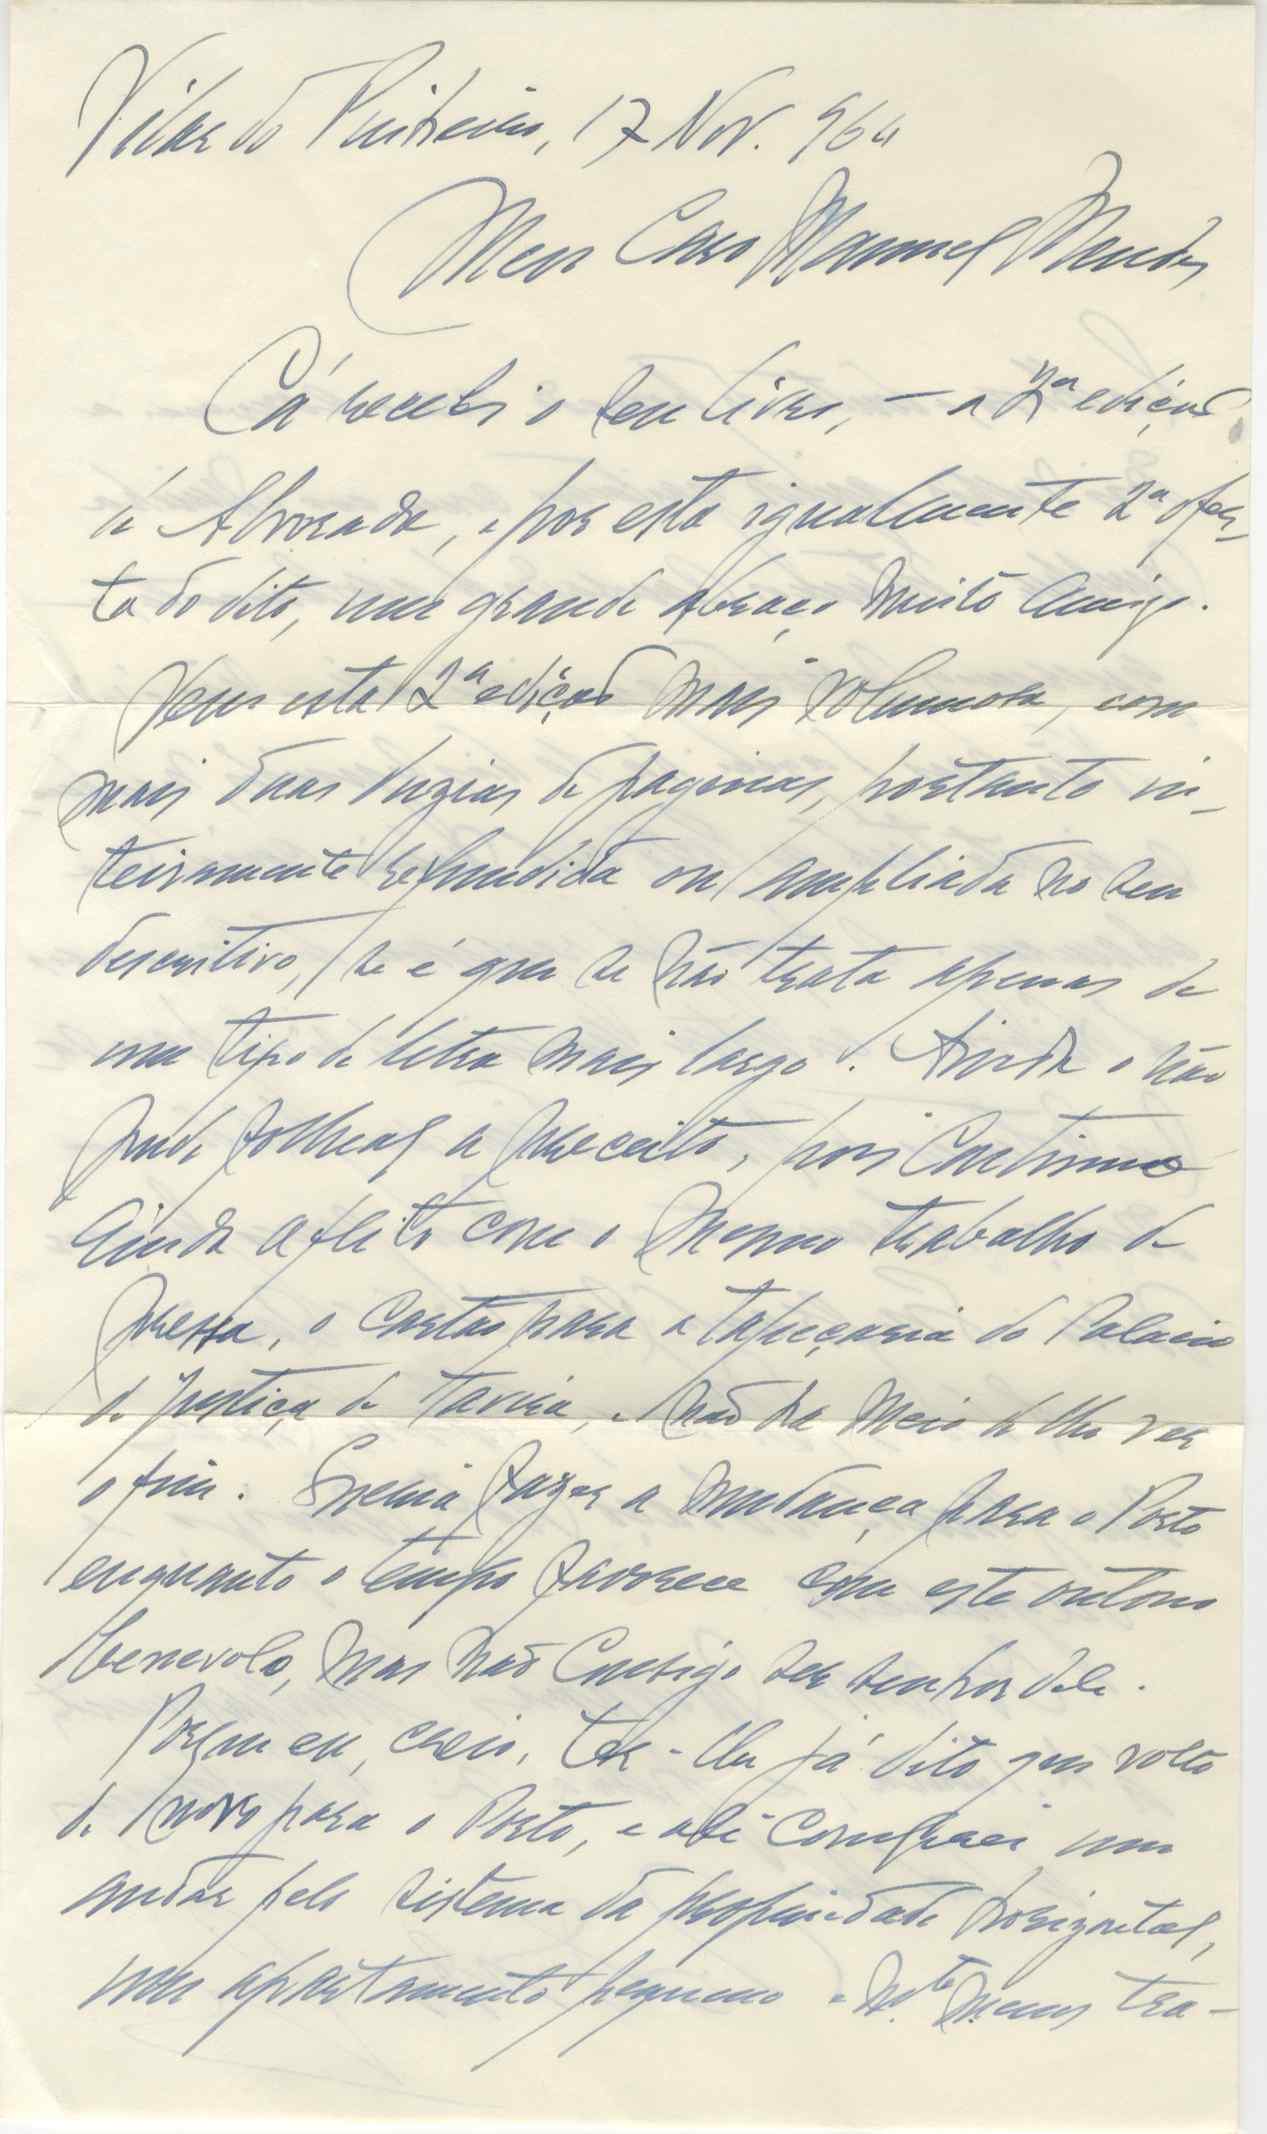 Vilar do Pinheiro, 17 Nov. 964
Meu Caro Manuel Mendes
Cá recebi o seu livro, – a 2ª edição
de Alvorada, e por esta igualmente 2ª ofer-
ta do dito, um grande abraço muito amigo.
Vem esta 2ª edição mais volumosa, com
mais duas duzias de paginas, portanto in-
teiramente refundida ou ampliada no seu
descritivo, se é que se não trata apenas de
um tipo de letra mais largo. Ainda o não
pude folhear a preceito, pois continuo
ainda aflito com o mesmo trabalho de
pressa, o cartão para a tapeçaria do Palacio
de Justiça de Tavira, e não ha meio de lhe ver
o fim. Queria fazer a mudança para o Porto
enquanto o tempo favorece com este outono
benevolo, mas não consigo ser senhor dele.
Porque eu, creio, ter-lhe já dito que volto
de novo para o Porto, e ali comprei um
andar pelo sistema da propriedade horizontal,
um apartamento pequeno e mto menos tra-